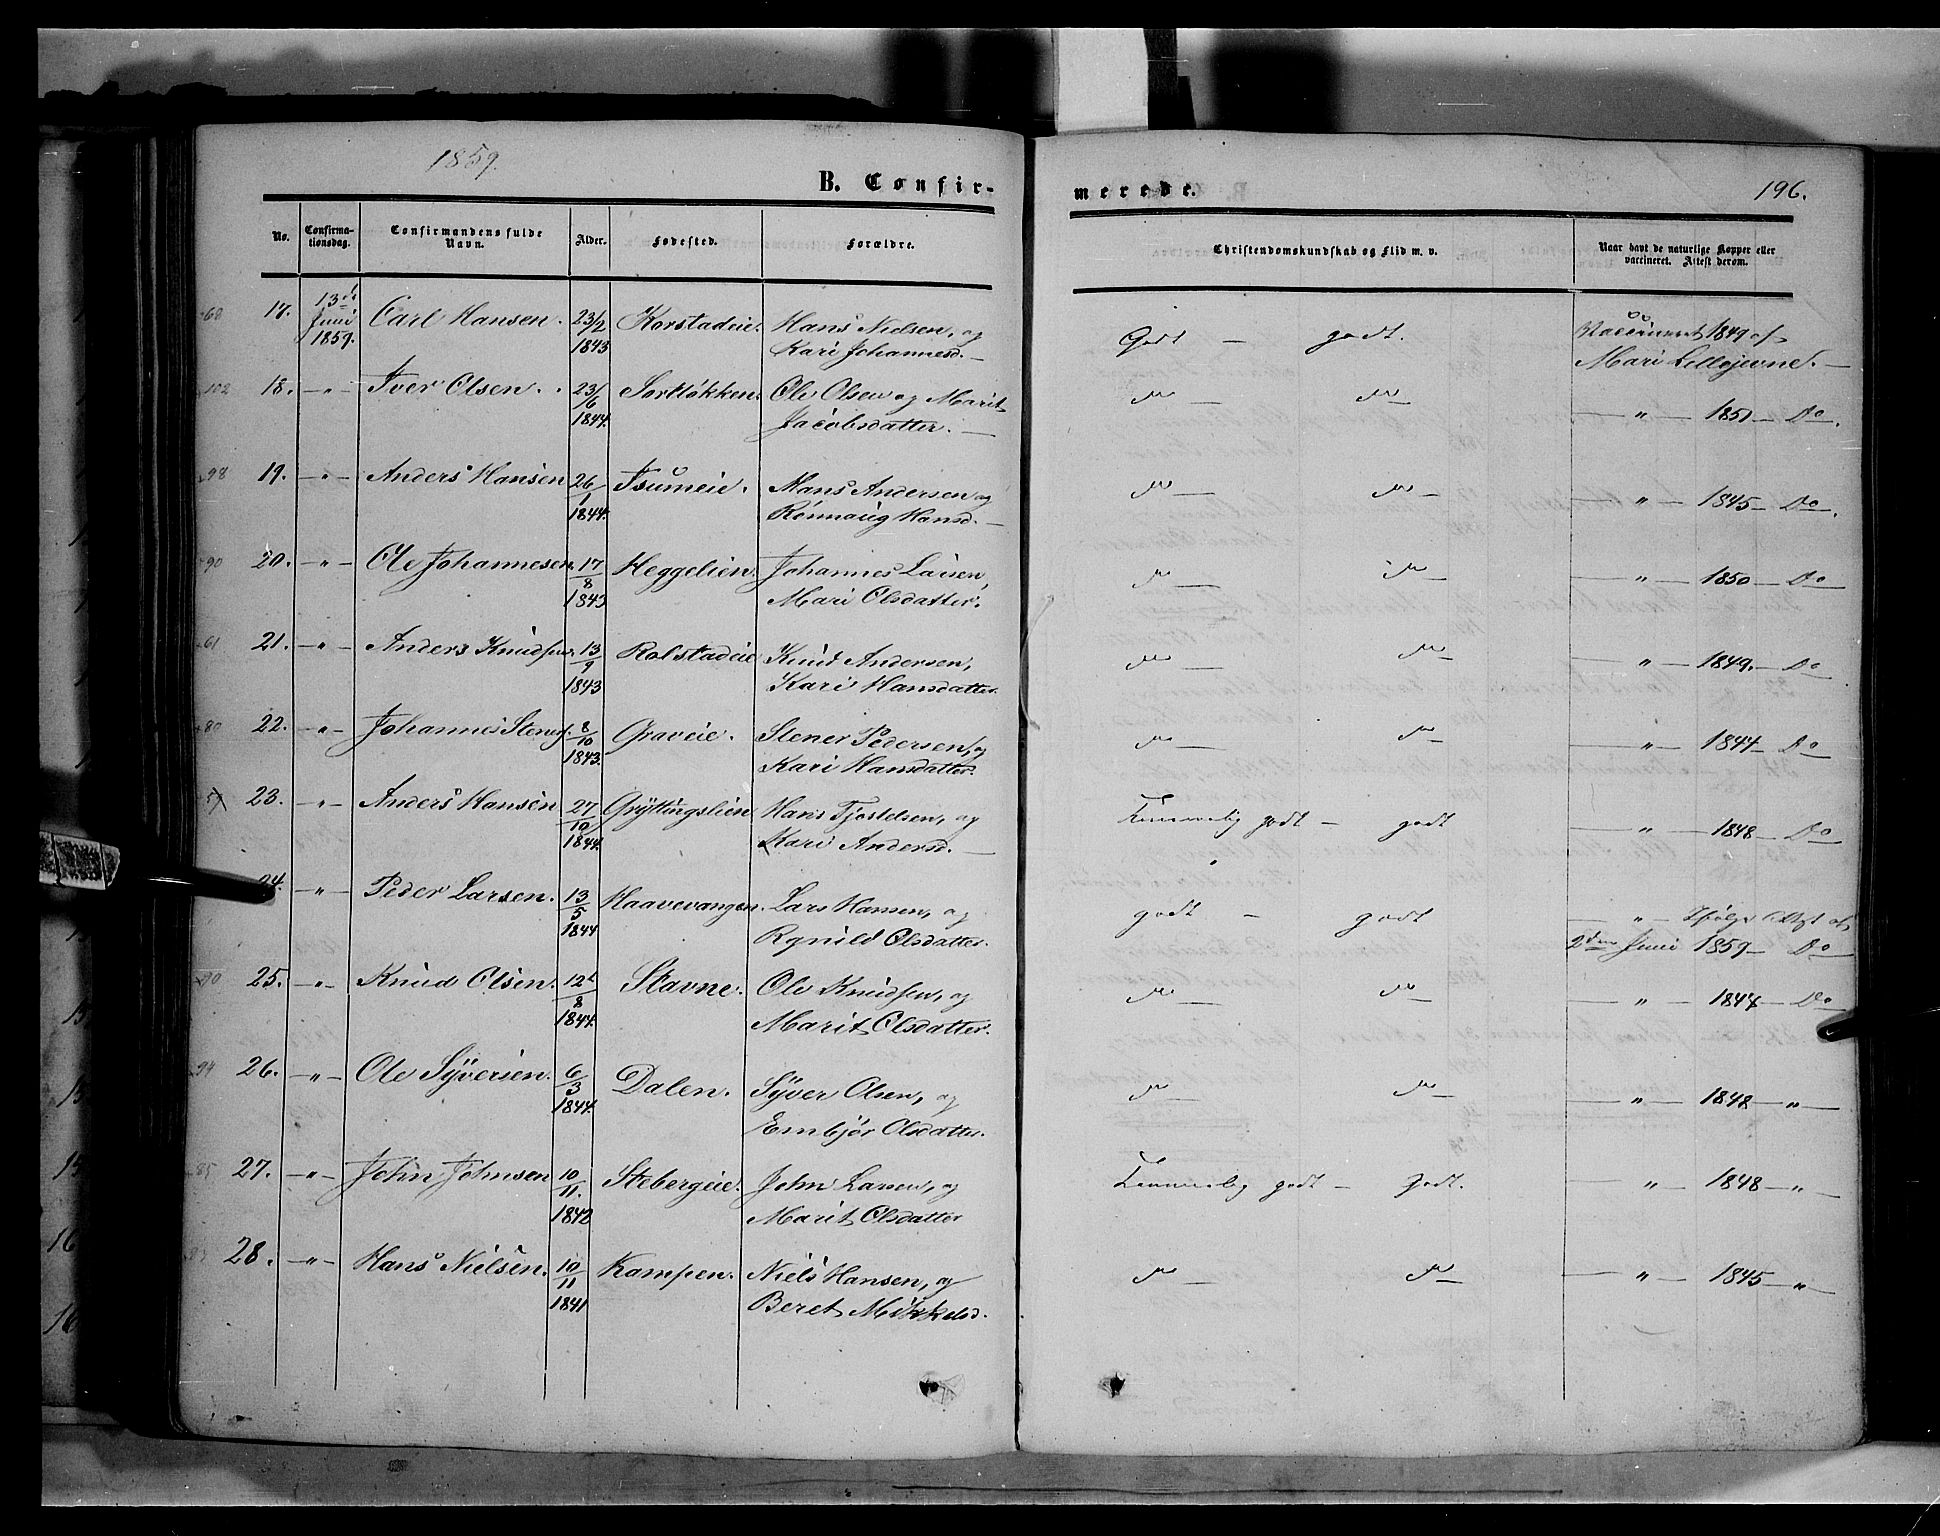 1859.
B. Confir-
merede.
196.
No.
Confirma-
tionsdag.
Confirmandens fulde
Navn.
Alder.
Fødested.
Forældre.
Christendomskundskab og Flid m. v.
Naar havt de naturlige Kopper eller
vaccineret. Attest derom.
68 17. 13de Juni 1859. Carl Hansen. 23/2 1843 Korstadeie. Hans Nielsen, og
Kari Johannesd. —
Godt — godt.
Vaccineret 1849 af
Mari Lillejevne. —
102 18. —"— Iver Olsen. 23/6 1844. Sortløkken. Ole Olsen og Marit
Jacobsdatter. —
do — do
—"— 1851 — Do.
98 19. —"— Anders Hansen 26/1 1844. Isumeie. Hans Andersen og
Rønnaug Hansd. —
do — do —
—"— 1845 — Do.
90 20. —"— Ole Johannesen. 17/8 1843 Heggelien. Johannes Larsen,
Mari Olsdatter.
do — do —
—"— 1850 — Do
61 21. —"— Anders Knudsen. 13/9 1843 Rolstadeie Knud Andersen,
Kari Hansdatter.
do — do —
—"— 1849. — Do
80 22. —"— Johannes Steners. 8/10 1843. Graveie. Stener Pedersen, og
Kari Hansdatter.
do — do —
—"— 1844 — Do
57 23. —"— Anders Hansen 27/10 1844. Gryttingslien Hans Tjostelsen, og
Kari Andersd. —
Temmelig godt — godt
—"— 1848 — Do
24. —"— Peder Larsen. 13/5 1844 Haavevangen. Lars Hansen, og
Rgnild Olsdatter.
godt — godt
—"— Ifølge Attest af
2den Juni 1859 — Do
25. —"— Knud Olsen. 12/8 1844. Stavne. Ole Knudsen, og
Marit Olsdatter.
do — do —
—"— 1847 — Do
94 26. —"— Ole Syversen. 6/3 1844. Dalen. Syver Olsen, og
Embjør Olsdatter.
do — do —
—"— 1848 — " —
85 27. —"— John Johnsen 10/11. 1842 Stebergeie. John Larsen, og
Marit Olsdatter
Temmelig godt — godt.
—"— 1848 — " —
28. —"— Hans Nielsen. 10/11 1841 Kampen. Niels Hansen, og
Beret Mikkelsd.
do — do —
—"— 1845 — " —